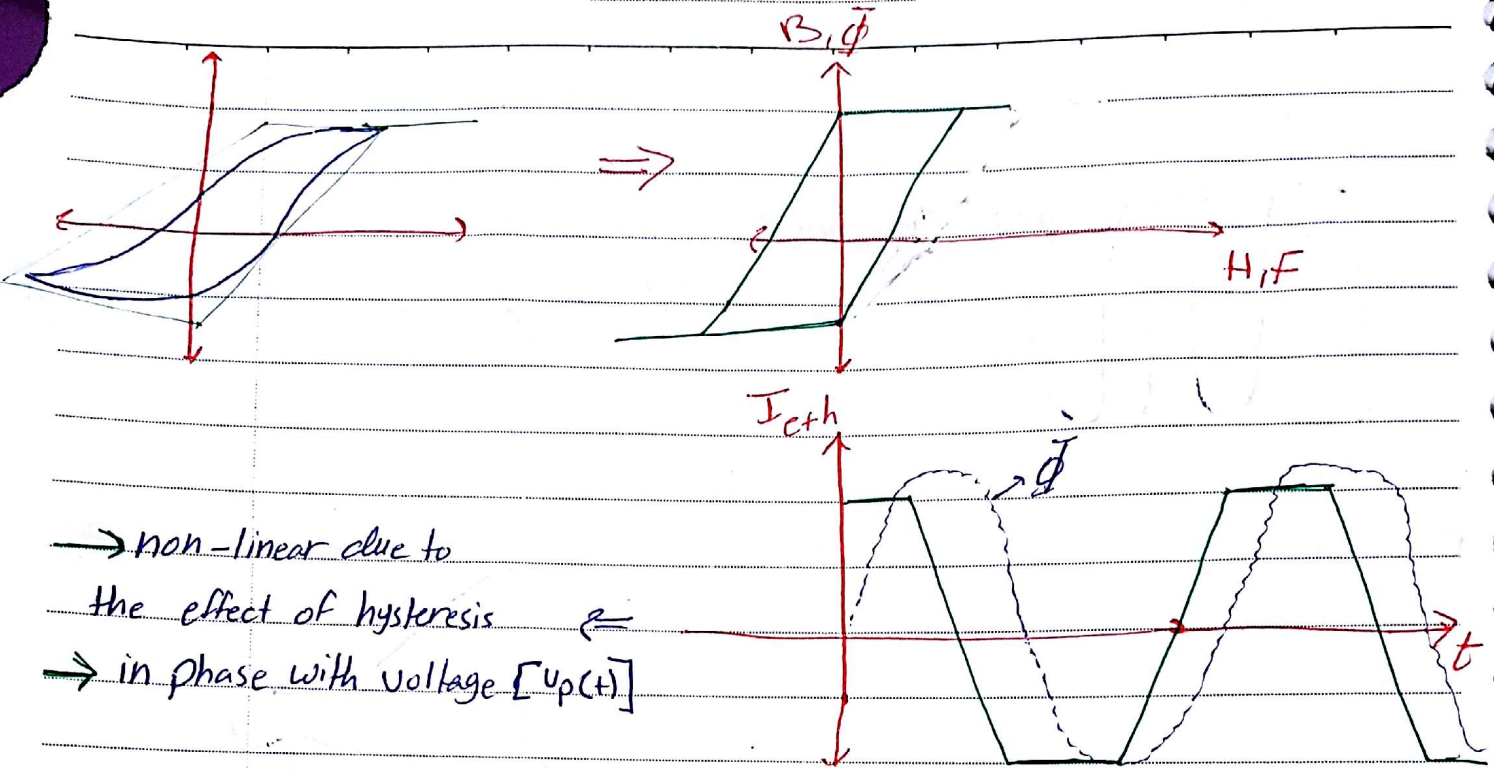 B, Φ
⇒
H, F
I e+h
Φ
→ non-linear due to
the effect of hysteresis
⇐
→ in phase with voltage [υp(t)]
t